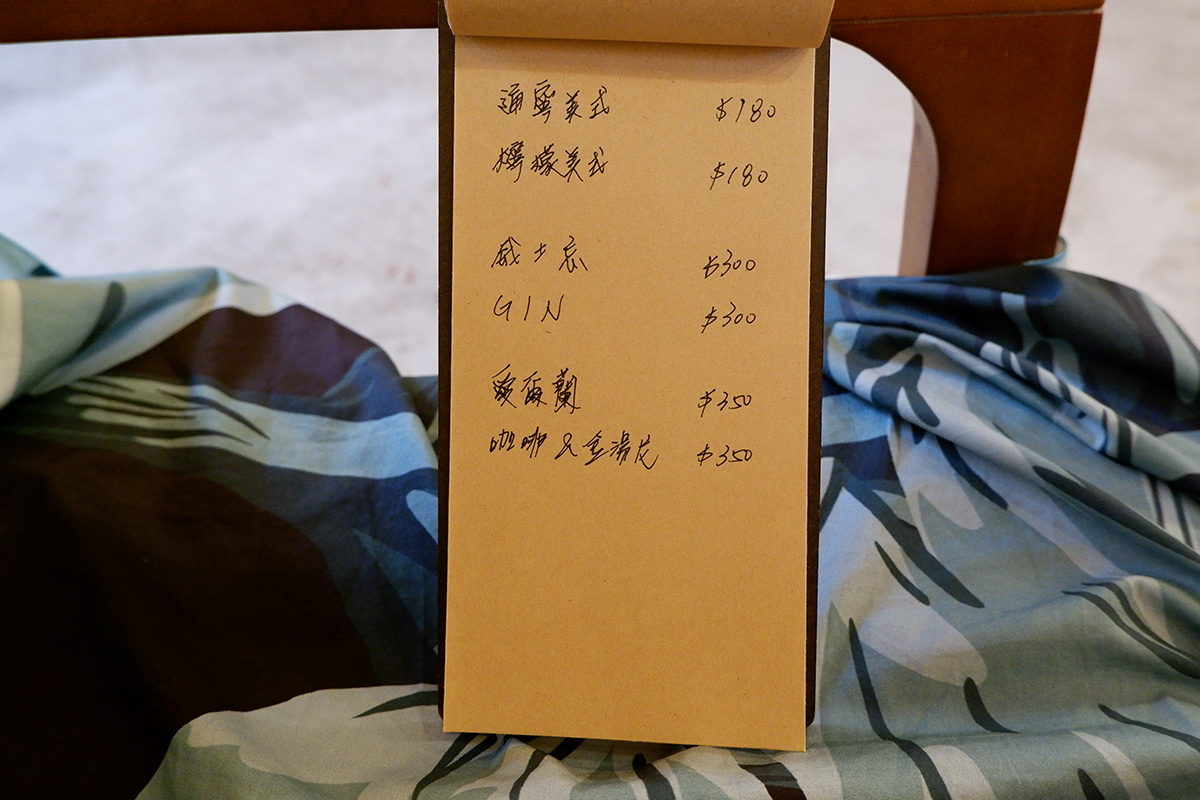 通寧美式 $180
檸檬美式 $180
威士忌 $300
GIN $300
愛爾蘭 $350
咖啡&金湯尼 $350